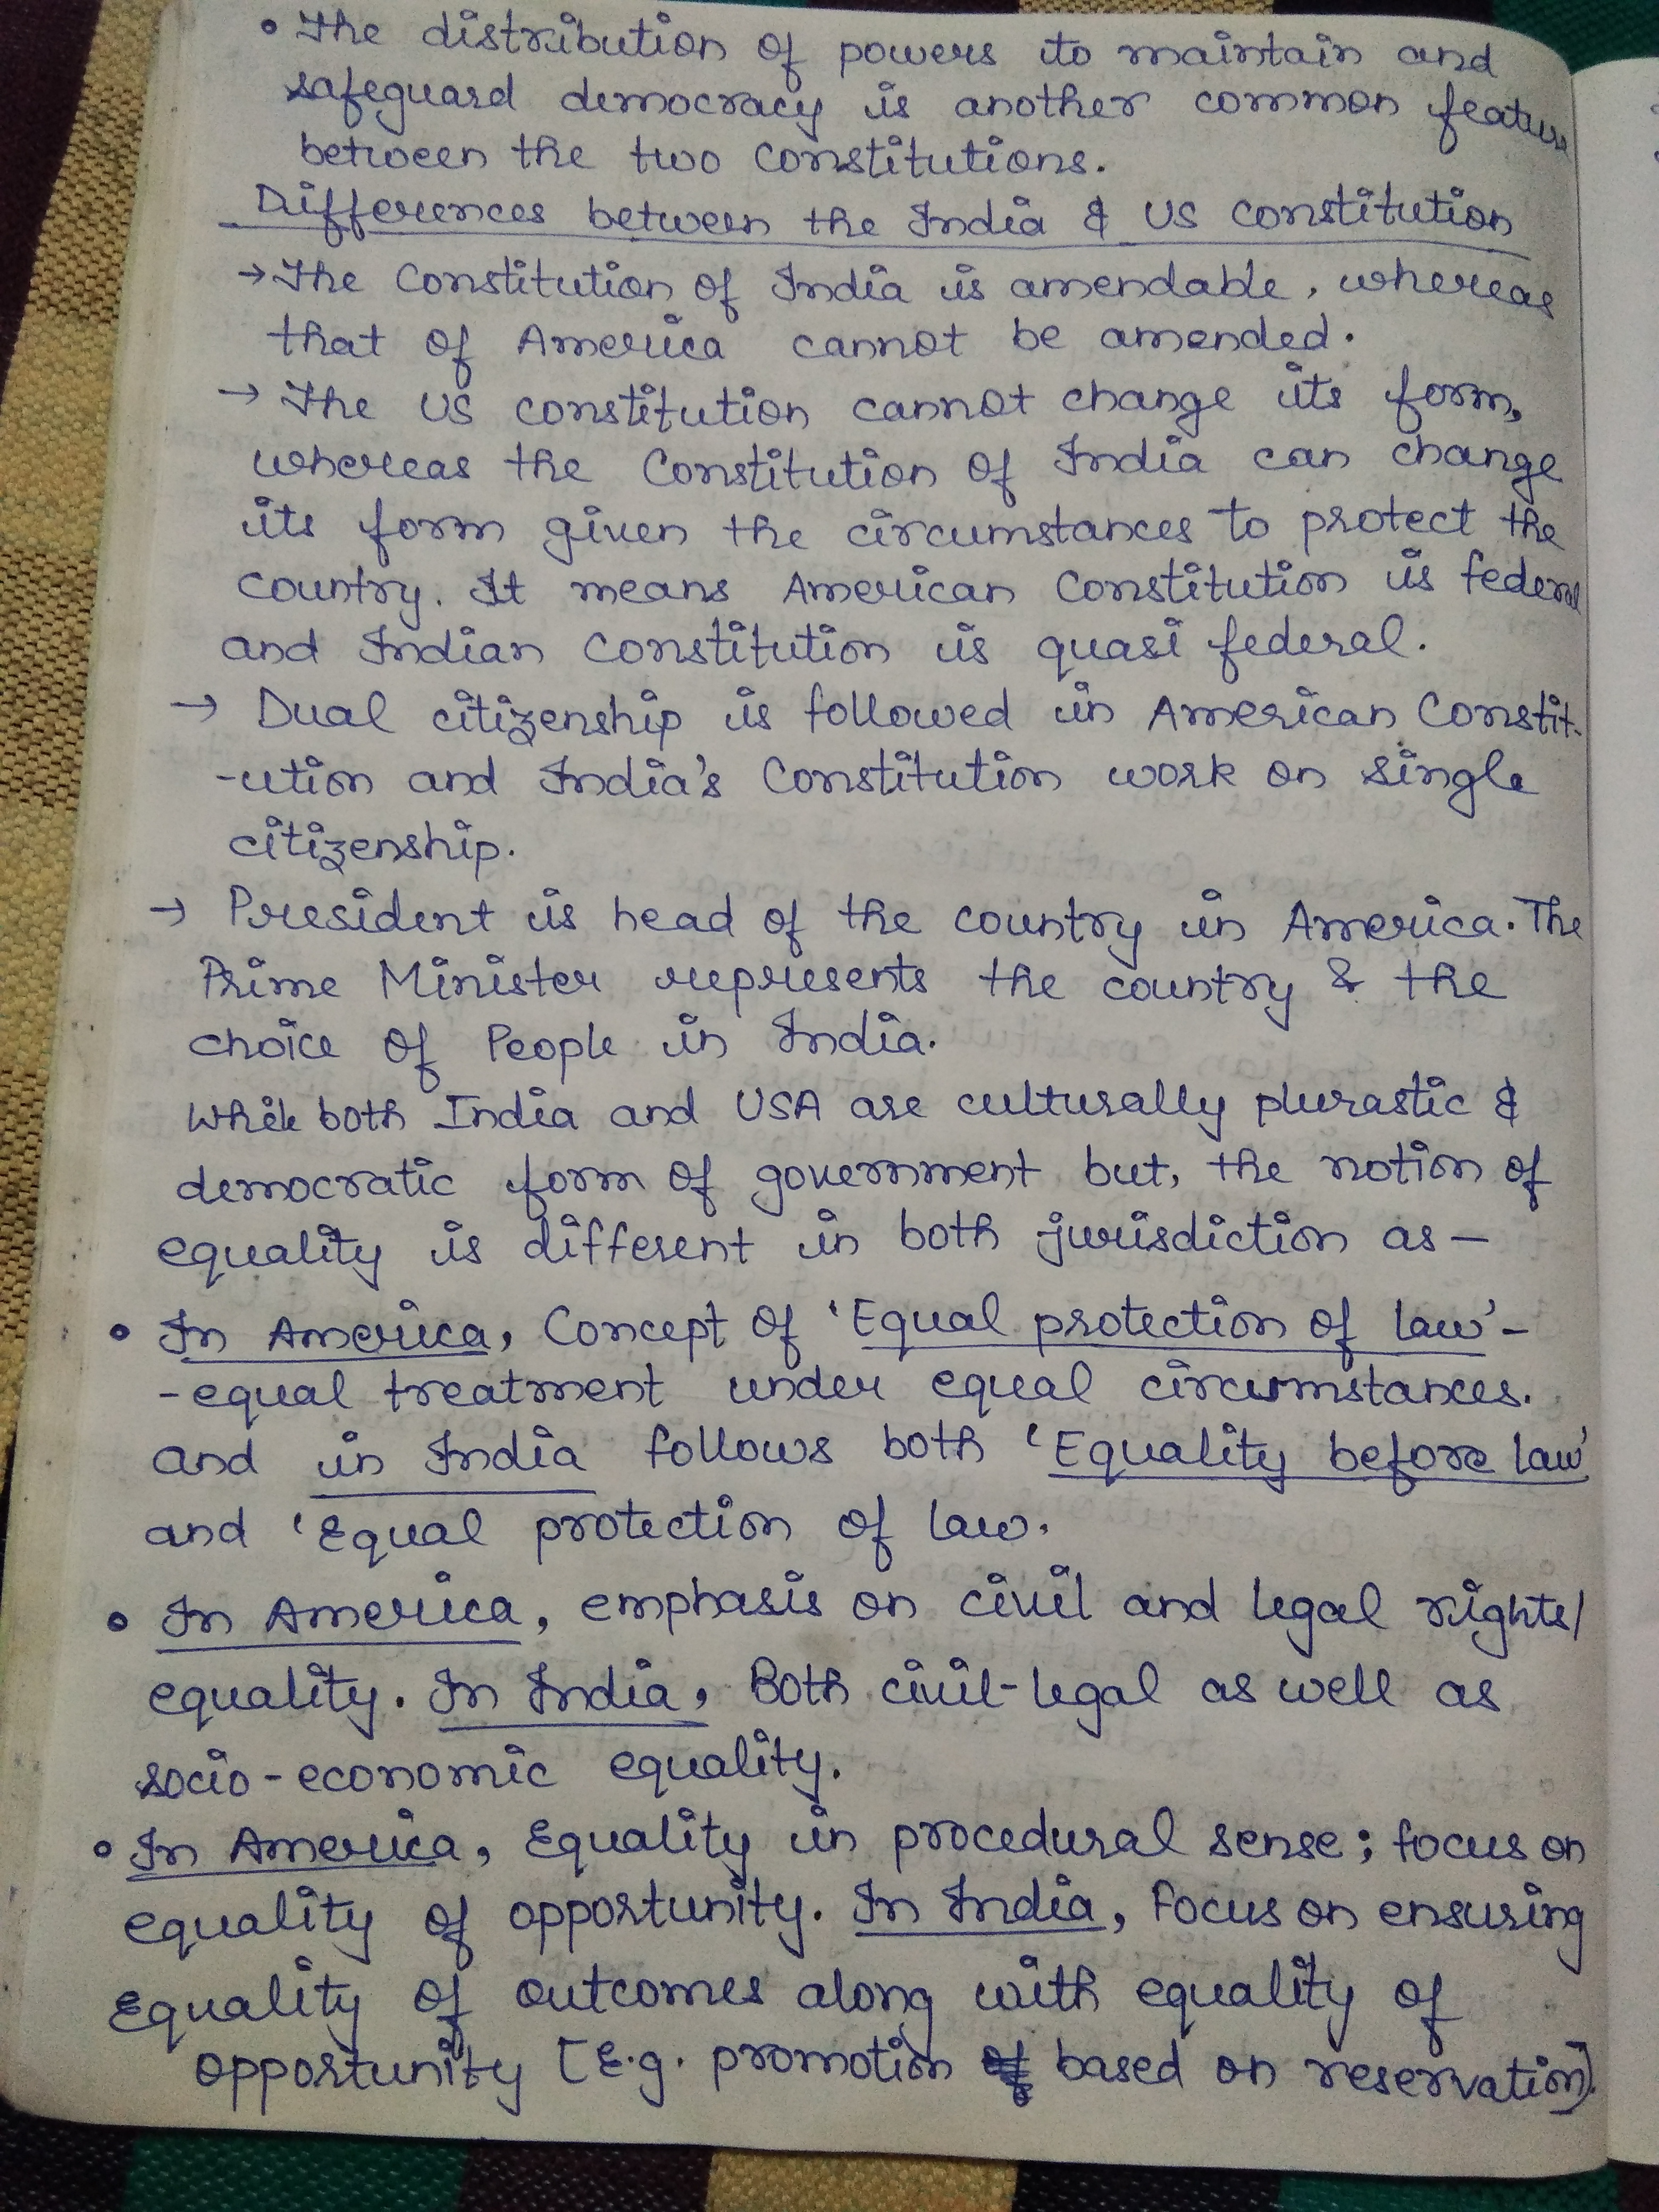 • The distribution of powers to maintain and
safeguard democracy is another common feature
between the two constitutions.
Differences between the India & US constitution
→ The Constitution of India is amendable, whereas
that of America cannot be amended.
→ The US constitution cannot change its form,
whereas the Constitution of India can change
its form given the circumstances to protect the
country. It means American Constitution is federal
and Indian Constitution is quasi federal.
→ Dual citizenship is followed in American Constit-
-ution and India's Constitution work on single
citizenship.
→ President is head of the country in America. The
Prime Minister represents the country & the
choice of People in India.
While both India and USA are culturally plurastic &
democratic form of government but, the notion of
equality is different in both jurisdiction as –
• In America, Concept of 'Equal protection of law' –
- equal treatment under equal circumstances.
and in India follows both 'Equality before law'
and 'Equal protection of law.
• In America, emphasis on civil and legal rights/
equality. In India, Both civil-legal as well as
socio-economic equality.
• In America, Equality in procedural sense; focus on
equality of opportunity. In India, Focus on ensuring
Equality of outcomes along with equality of
opportunity [E.g. promotion based on reservation].